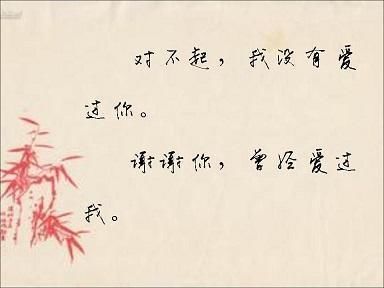 对不起，我没有爱
过你。
谢谢你，曾经爱过
我。